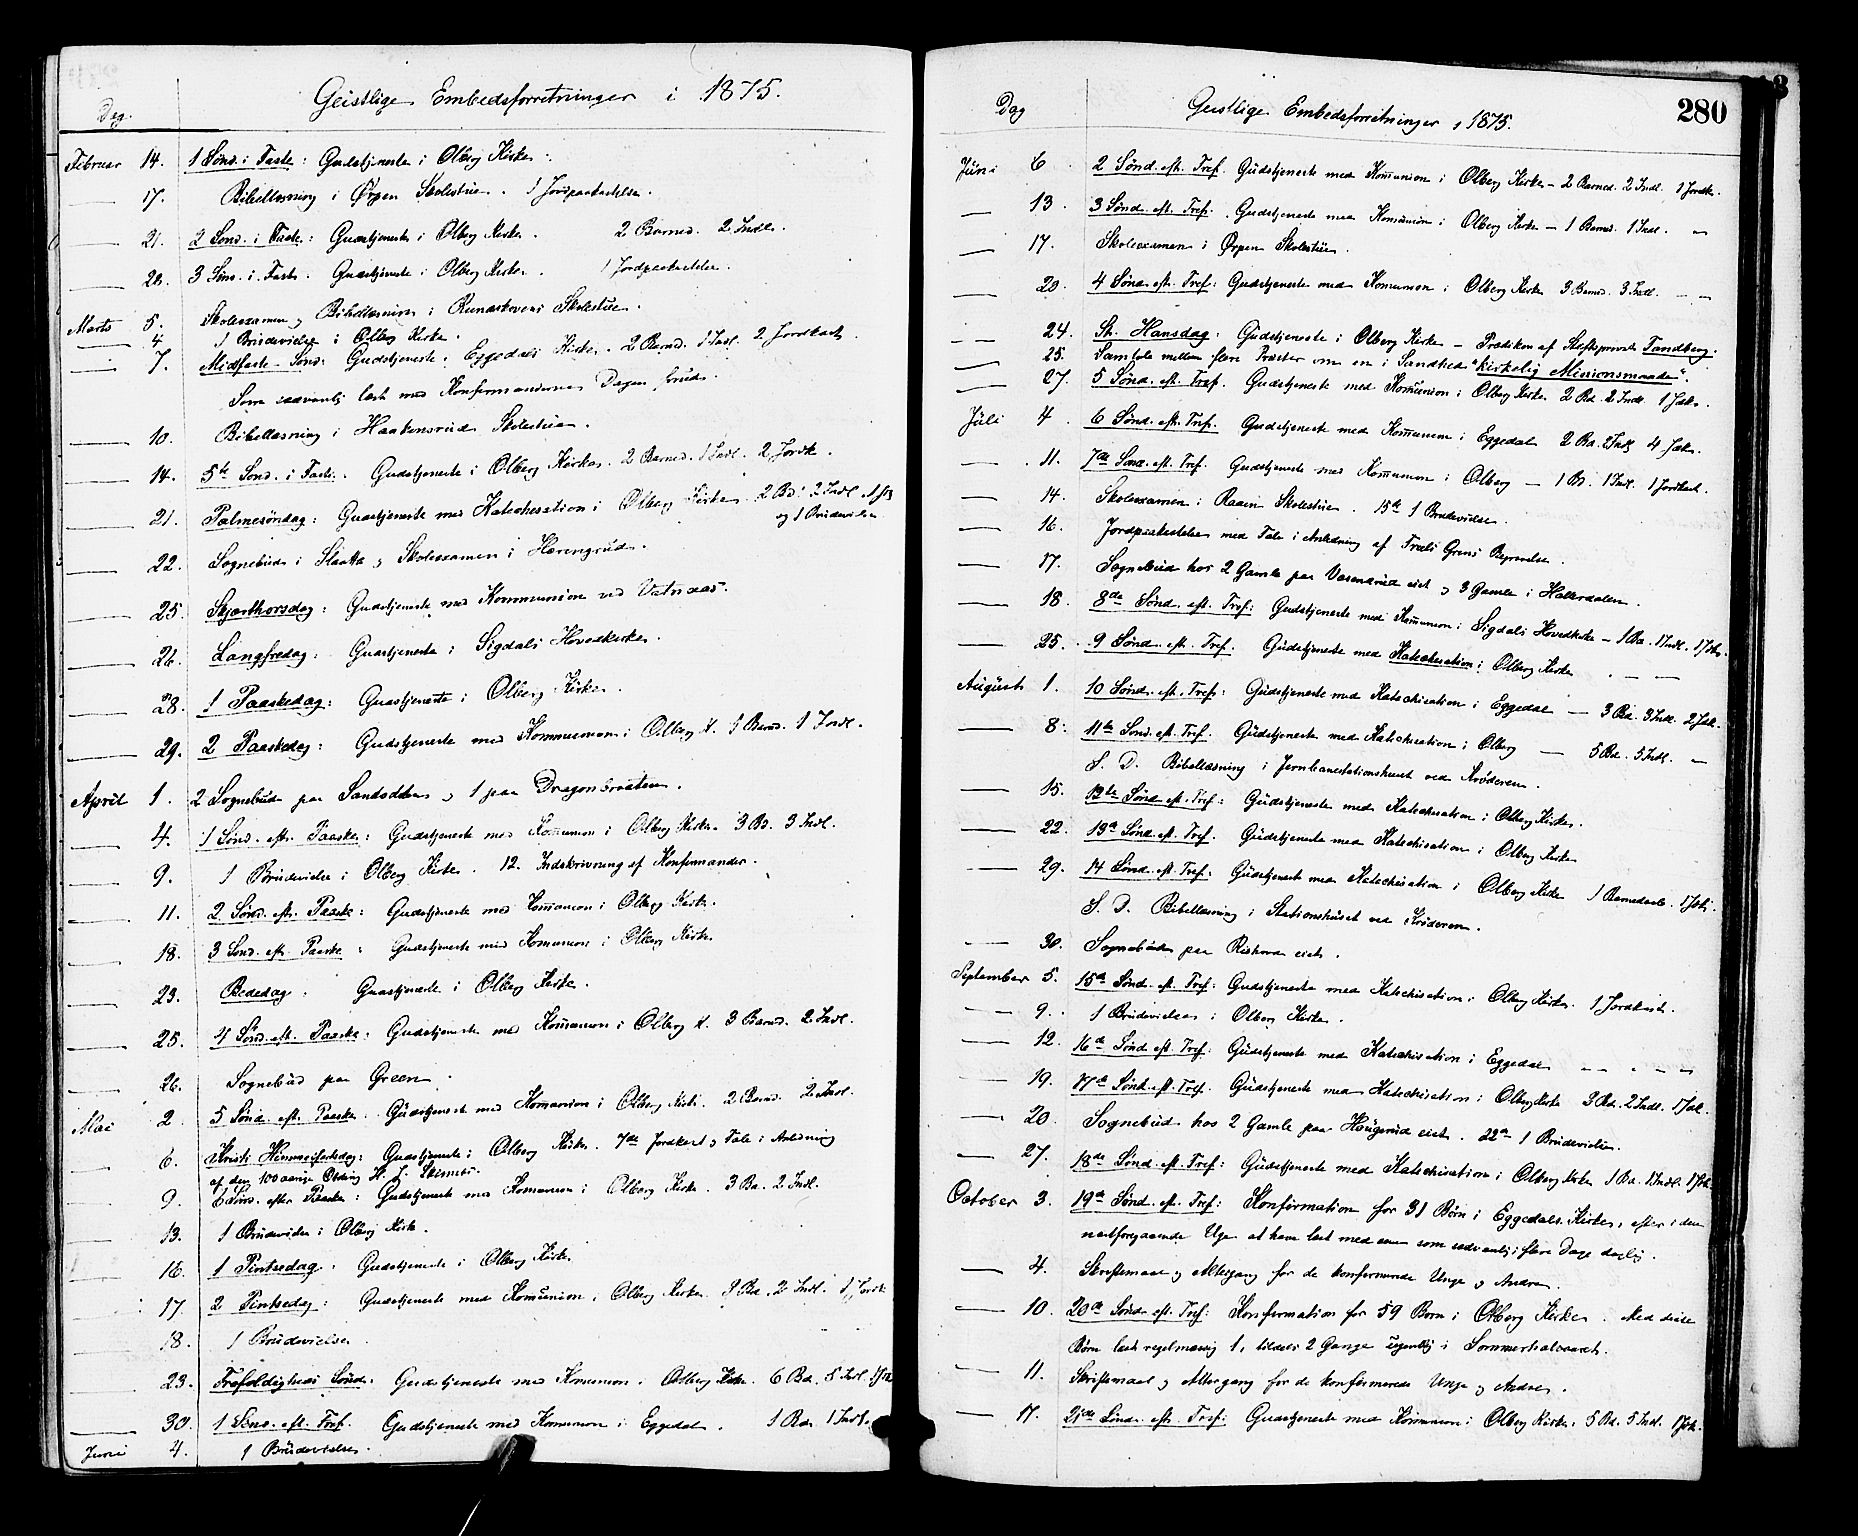 Geistlige Embedsforretninger i 1875.
Dag.
Februar 14. 1 Sønd. i Faste: Gudstjeneste i Olberg Kirke.
17. Bibellæsning i Ørgen Skolestue. 1 Jordpaakastelse.
21. 2 Sønd. i Faste: Gudstjeneste i Olberg Kirke. 2 Barned. 2 Indl.
28. 3 Sønd. i Faste. Gudstjeneste i Olberg Kirke. 1 Jordpaakastelse.
Marts 5. Skoleexamen og Bibellæsning i Skolestue.
4 1 Brudevielse i Olberg Kirke.
7. Midfaste-Sønd: Gudstjeneste i Eggedals Kirke. 2 Barned. 1 Indl. 2 Jordkast.
Som sædvanlig læst med Konfirmanderne Dagen forud.
10. Bibellæsning i Haakensrud Skolestue.
14. 5te Sønd. i Faste. Gudstjeneste i Olberg Kirke. 2 Barned. 1 Indl. 2 Jordk.
21. Palmesøndag: Gudstjeneste med Katechisation i Olberg Kirke 2 Bd. 2 Indl
og 1 Brudevielse
22. Sognebud i Slaatta og Skoleexamen i Hærengrud.
25. Skjærthorsdag: Gudstjeneste med Kommunion ved Vatnaas.
26. Langfredag: Gudstjeneste i Sigdals Hovedkirke.
28. 1 Paaskedag: Gudstjeneste i Olberg Kirke.
29. 2 Paaskedag: Gudstjeneste med Kommunion i Olberg K. 1 Barned. 1 Indl.
April 1. 2 Sognebud paa Sandodden og 1 paa Dragonbraaten.
4. 1 Sønd. eftr. Paaske: Gudstjeneste med Komunion i Olberg Kirke 3 Bd. 3 Indl.
9. 1 Brudevielse i Olberg Kirke. 12. Indskrivning af Konfirmander.
11. 2 Sønd. eftr. Paaske: Gudstjeneste med Komunion i Olberg Kirke.
18. 3 Sønd. eft. Paaske: Gudstjeneste med Komunion i Olberg Kirke
23. Bededag: Gudstjeneste i Olberg Kirke.
25. 4 Sønd. eft. Paaske: Gudstjeneste med Komunion i Olberg K. 3 Barned. 2 Indl.
26. Sognebud paa Green.
Mai 2. 5 Sønd. eft. Paaske. Gudstjeneste med Komunion i Olberg Kirke. 2 Barned. 2 Indl.
6. Kristi Himmelfartsdag: Gudstjeneste i Olberg Kirke. 7de Jordkast og Tale i Anledning
af den 100 aarige Olding H. J.
9. 6 Sønd. efter Paaske: Gudstjeneste med Komunion i Olberg Kirke. 3 Bd. 2 Indl.
13. 1 Brudevielse i Olberg Kirke.
16. 1 Pintsedag: Gudstjeneste i Olberg Kirke
17. 2 Pintsedag: Gudstjeneste med Komunion i Olberg Kirke. 1 Bd. 2 Indl. 1 Jordk
18. 1 Brudevielse
23. Trefoldigheds Sønd: Gudstjeneste med Komunion i Olberg Kirke. 6 Bd. 5 Indl.
30. 1 Sønd. eft. Tref. Gudstjeneste med Komunion i Eggedal. 1 Bd. 1 Indl.
Juni 4. 1 Brudevielse.
280
Dag
Geistlige Embedsforretninger i 1875.
Juni 6 2 Sønd. eft. Tref. Gudstjeneste med Komunion i Olberg Kirke – 2 Barned. 2 Indl. 1 Jordk.
13. 3 Sønd. eft. Tref. Gudstjeneste med Komunion i Olberg Kirke – 1 Barned. 1 Indl. "
17. Skoleexamen i Ørgen Skolestue.
20. 4 Sønd. eft. Tref: Gudstjeneste med Komunion i Olberg Kirke 3 Barned. 3 Indl. – –
24. St. Hansdag: Gudstjeneste i Olberg Kirke – Prædiken af Stiftsprovst Tandberg.
25. Samtale mellem flere Præster om en i Sandhed "kirkelig Missionsmaade".
27. 5 Sønd. eft. Tref. Gudstjeneste med Komunion i Olberg Kirke 2 Bd. 2 Indl. 1 Jk.
Juli 4 6 Sønd. eft. Tref. Gudstjeneste med Komunion i Eggedal 2 Bd. 2 Indl 4 Jk.
11. 7de Sønd. eft. Tref. Gudstjeneste med Komunion i Olberg – 1 Bd. 1 Indl. 1 Jordkast.
14. Skoleexamen i Raaen Skolestue. 15de 1 Brudevielse.
16. Jordpaakastelse med Tale i Anledning af Begravelse.
17. Sognebud hos 2 Gamle paa eiet og 3 Gamle i
18. 8de Sønd. eft. Tref: Gudstjeneste med Komunion i Sigdals Hovedkirke – 1 Bd. 1 Indl. 1 Jk.
25. 9 Sønd. eft. Tref. Gudstjeneste med Katechisation i Olberg Kirke . – –
August 1. 10 Sønd. eft. Tref: Gudstjeneste med Katechisation i Eggedal – 3 Bd. 3 Indl. 2 Jk.
8. 11te Sønd. eft. Tref. Gudstjeneste med Katechisation i Olberg – 5 Bd. 5 Indl. –
S. D. Bibellæsning i Jernbanestationshuset ved Krøderen.
15. 12te Sønd. eft. Tref: Gudstjeneste med Katechisation i Olberg Kirke.
22. 13de Sønd. eft. Tref. Gudstjeneste med Katechisation i Olberg Kirke
29. 14 Sønd. eft. Tref: Gudstjeneste med Katechisation i Olberg Kirke 1 Barnedaab. 1 Jk.
S. D. Bibellæsning i Stationshuset ved Krøderen.
30. Sognebud paa eiet.
September 5. 15de Sønd. eft. Tref: Gudstjeneste med Katechisation i Olberg Kirke. 1 Jordkast.
9. 1 Brudevielse i Olberg Kirke.
12. 16de Sønd. eft. Tref: Gudstjeneste med Katechisation i Eggedal – – – –
19. 17de Sønd. eft. Tref. Gudstjeneste med Katechisation i Olberg Kirke 3 Bd. 2 Indl. 1 Jk.
20. Sognebud hos 2 Gamle paa Haugerud eiet. 22de 1 Brudevielse.
27. 18de Sønd. eft. Tref: Gudstjeneste med Katechisation i Olberg Kirke 1 Bd. 1 Indl. 1 Jk
October 3. 19de Sønd. eft. Tref: Konfirmation for 31 Børn i Eggedals Kirke, efter i den
næstforegaaende Uge at have læst med dem som sædvanlig i flere Dage daglig.
4. Skriftemaal og Altergang for de konfirmerede Unge og Andre.
10. 20de Sønd. eft. Tref: Konfirmation for 59 Børn i Olberg Kirke. Med disse
Børn læst regelmæssig 1, tildels 2 Gange ugentlig i Sommerhalvaaret.
11. Skriftemaal og Altergang for de konfirmerede Unge og Andre.
17. 21de Sønd. eft. Tref: Gudstjeneste med Komunion i Olberg Kirke. 5 Bd. 5 Indl. 1 Jk.